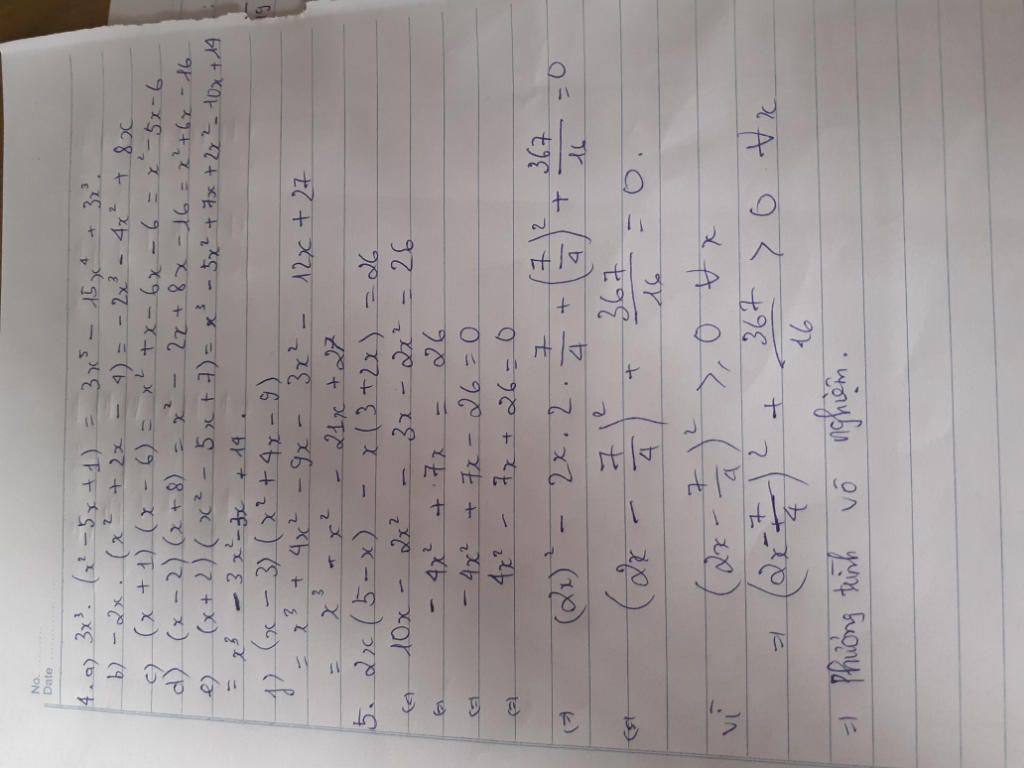 No.
Date
4. a) 3x³. (x² - 5x + 1) = 3x⁵ - 15x⁴ + 3x³.
b) -2x. (x² + 2x - 4) = -2x³ - 4x² + 8x
c) (x + 1)(x - 6) = x² + x - 6x - 6 = x² - 5x - 6
d) (x - 2)(x + 8) = x² - 2x + 8x - 16 = x² + 6x - 16
e) (x + 2)(x² - 5x + 7) = x³ - 5x² + 7x + 2x² - 10x + 14
= x³ - 3x² - 3x + 14.
f) (x - 3)(x² + 4x - 9)
= x³ + 4x² - 9x - 3x² - 12x + 27
= x³ + x² - 21x + 27
5. 2x(5 - x) - x(3 + 2x) = 26
(=) 10x - 2x² - 3x - 2x² = 26
(=) -4x² + 7x = 26
(=) -4x² + 7x - 26 = 0
(=) 4x² - 7x + 26 = 0
(=) (2x)² - 2x. 2. 7/4 + (7/4)² + 367/16 = 0
(=) (2x - 7/4)² + 367/16 = 0.
Vì (2x - 7/4)² ≥ 0 ∀ x
=) (2x - 7/4)² + 367/16 > 0 ∀ x
=) Phương trình vô nghiệm.